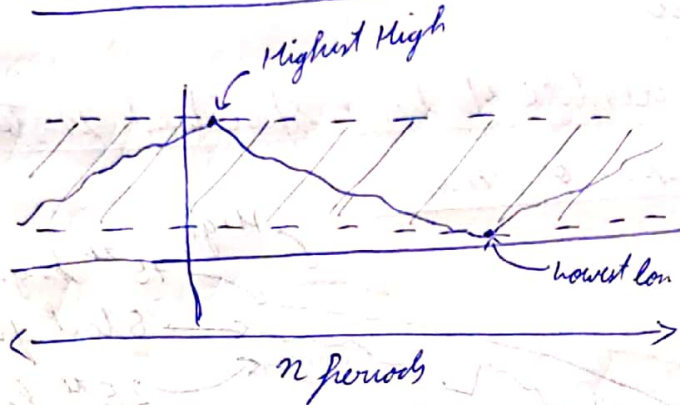 Highest High
Lowest low
n periods